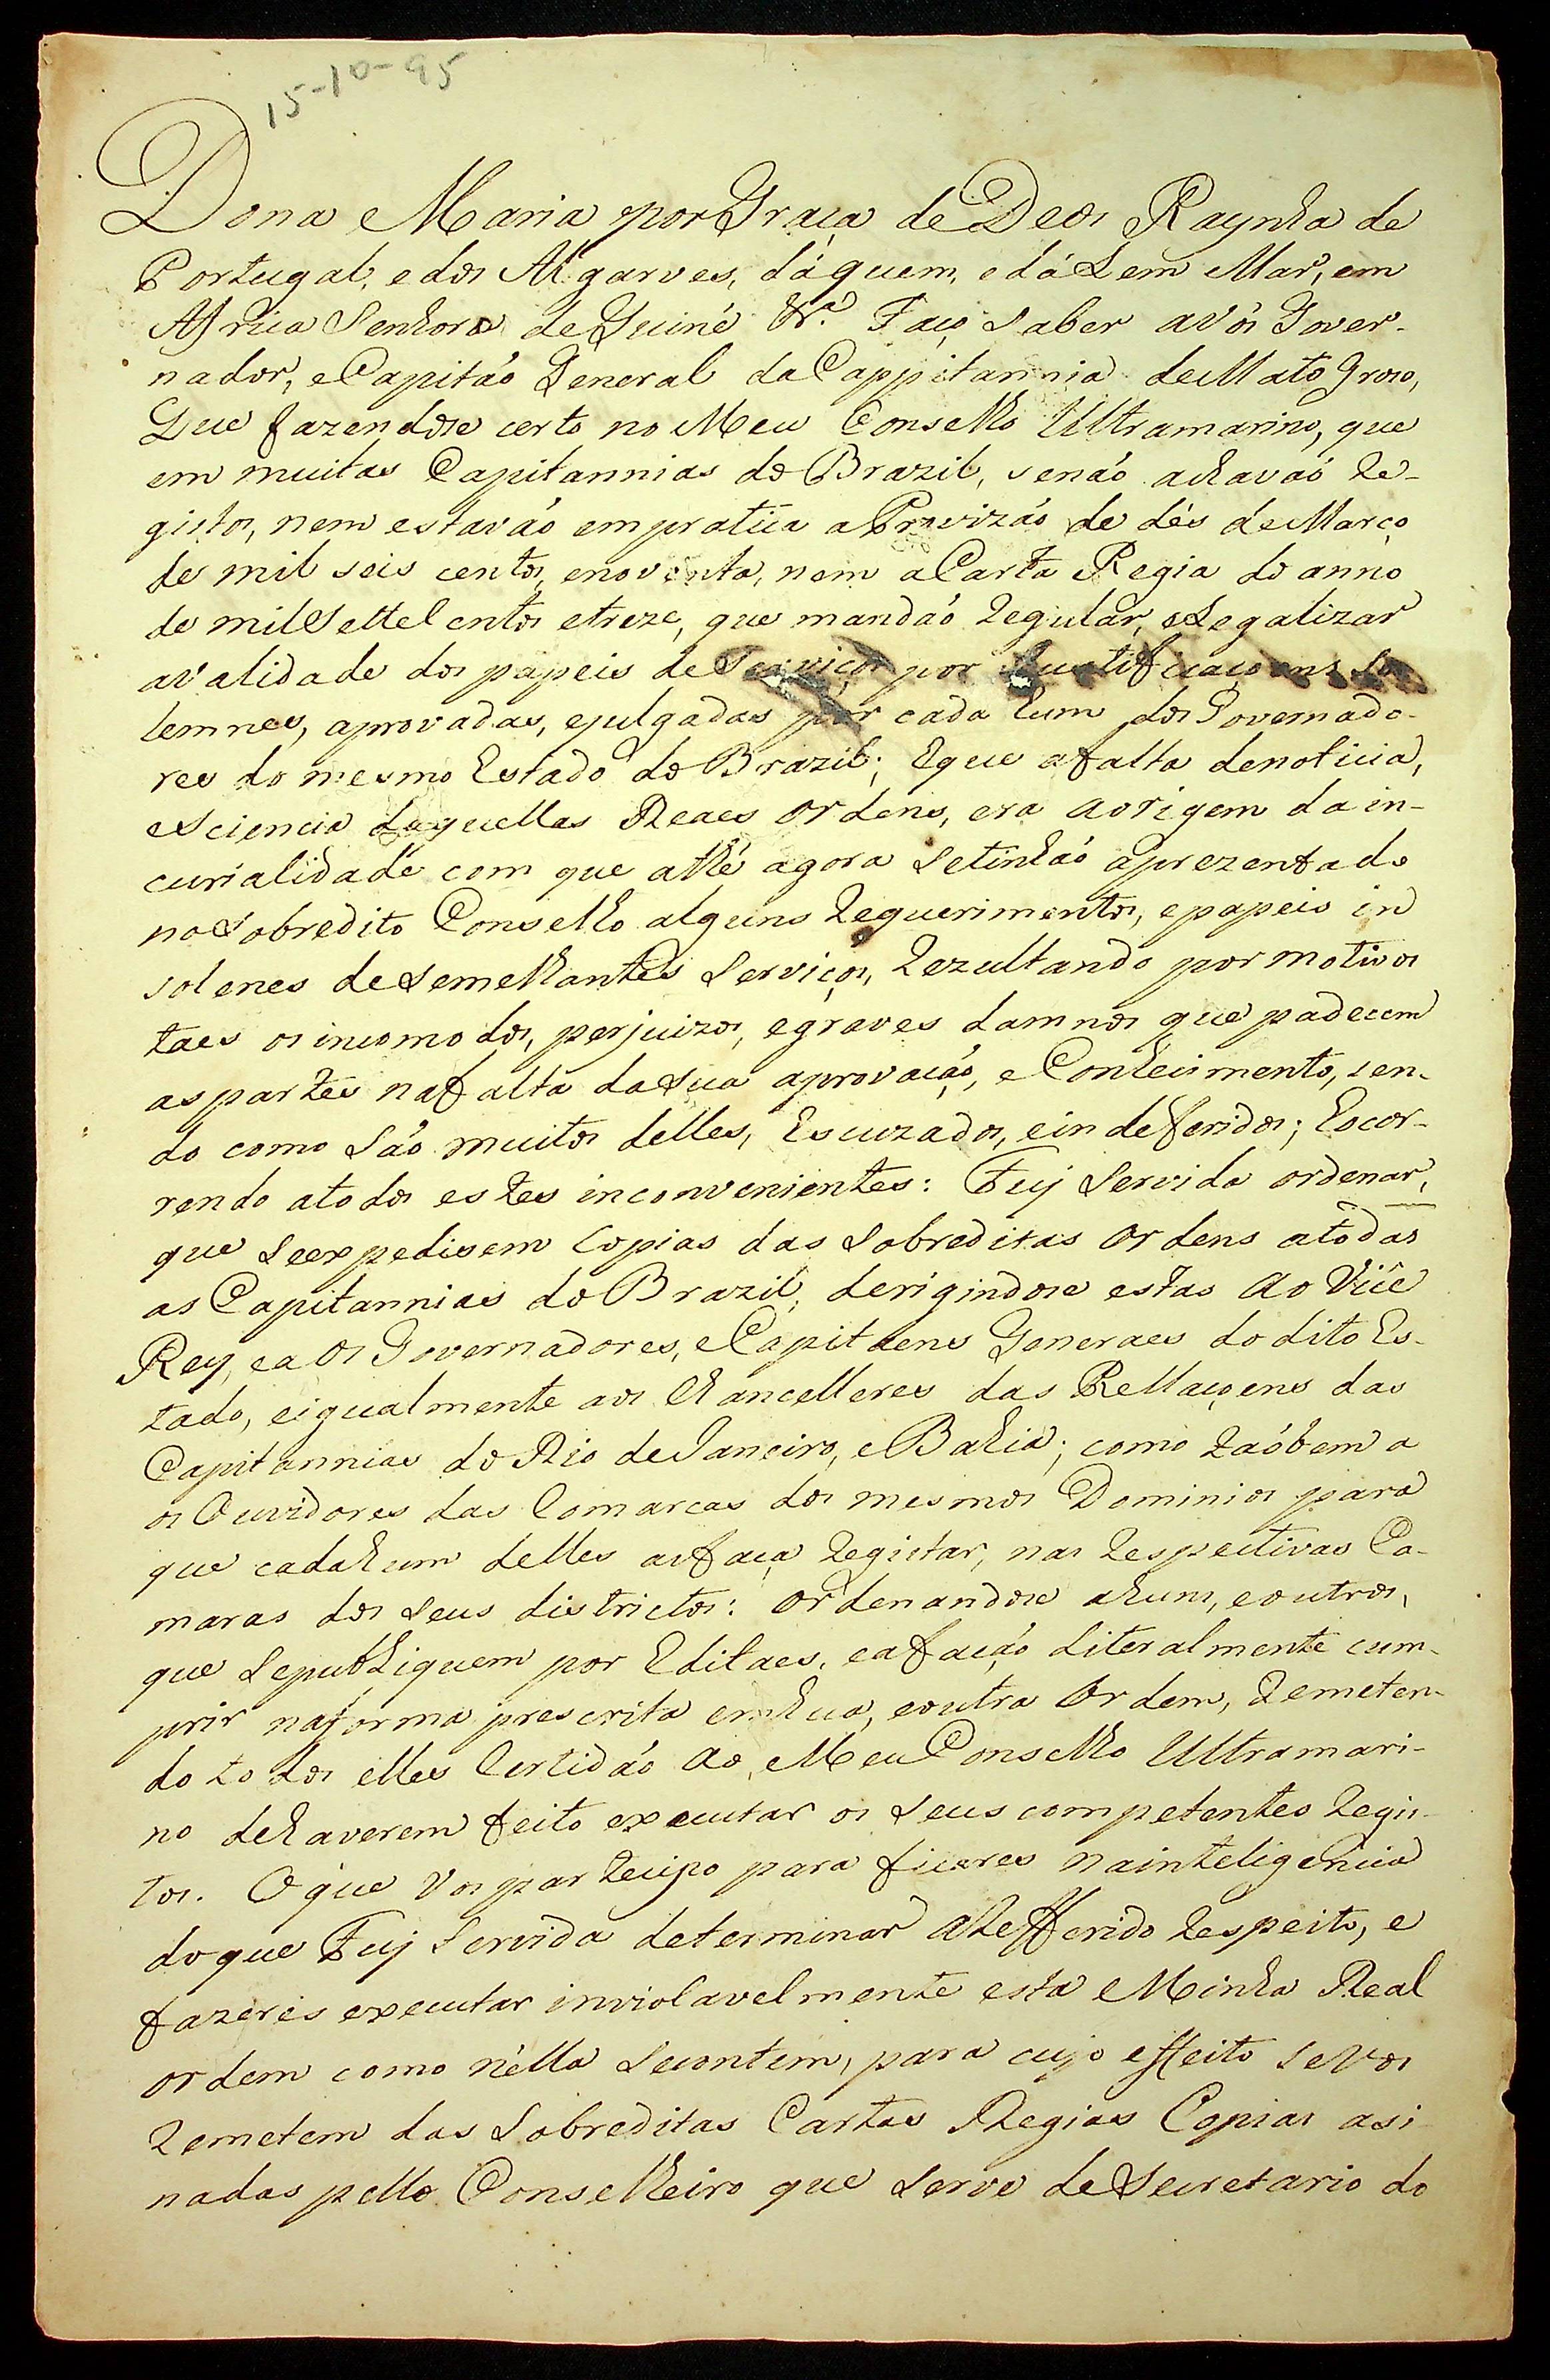 15-10-95
Dona Maria por Graça de Deos Raynha de
Portugal, e dos Algarves, dáquem, e dáLem Mar, em
Africa Senhora de Guiné &.ª Faço Saber avós Gover-
nador, e Capitáo General da Cappitannia de Mato Groso,
Que fazendose certo no Meu Conselho Ultramarino, que
em muitas Capitannias do Brazil, senáo achavaó Re-
gistos, nem estaváo empratica a Provizáo de dés de Março
de mil seis centos, enoventa, nem a Carta Regia do anno
de mil Sette Centos etreze, que mandáo Regular, eLegalizar
avalidade dos papeis de Serviços por Justificaçoens So
lemnes, aprovadas, ejulgadas por cada hum dos Governado-
res do mesmo Estado do Brazil; Eque afalta denoticia,
eSciencia daquellas Reaes Ordens, era aorigem da in-
curialidade com que athé agora Setinháo aprezentado
noSobredito Conselho alguns Requerimentos, epapeis in
solenes deSemelhantes Serviços, Rezultando por motivos
taes os incomodos, perjuizos, egraves damnos que padecem
as partes nafalta daSua aprovaçáo, eConhecimento, sen-
do como Sáo muitos delles, Escuzados, eindeferidos; Eocor-
rendo atodos estes inconvenientes: Fuy Servida ordenar,
que Seexpedisem Copias das Sobreditas Ordens atodas
as Capitannias do Brazil, derigindose estas ao Vice
Rey, eaos Governadores, eCapitaens Generaes do dito Es-
tado, eigualmente aos Chancelleres das Rellaçoens das
Capitannias do Rio deJaneiro, eBahia; como taóbem a
os Ouvidores das Comarcas dos mesmos Dominios para
que cadahum delles asfaça Registar, nas Respectivas Ca-
maras dos Seus districtos: Ordenandose ahuns, eoutros,
que Sepubliquem por Editaes, eafaçáo Literalmente cum-
prir naforma prescrita emhua, eoutra Ordem, Remeten-
do todos elles Certidáo ao Meu Conselho Ultramari-
no dehaverem feito executar os Seus competentes Regis-
tos. Oque Vos partecipo para ficares nainteligencia
doque Fuy Servida determinar aRefferido Respeito, e
fazeres executar inviolavelmente esta Minha Real
Ordem como nélla Secontem, para cujo effeito seVos
Remetem das Sobreditas Cartas Regias Copias asi
nadas pello Conselheiro que Serve deSecretario do